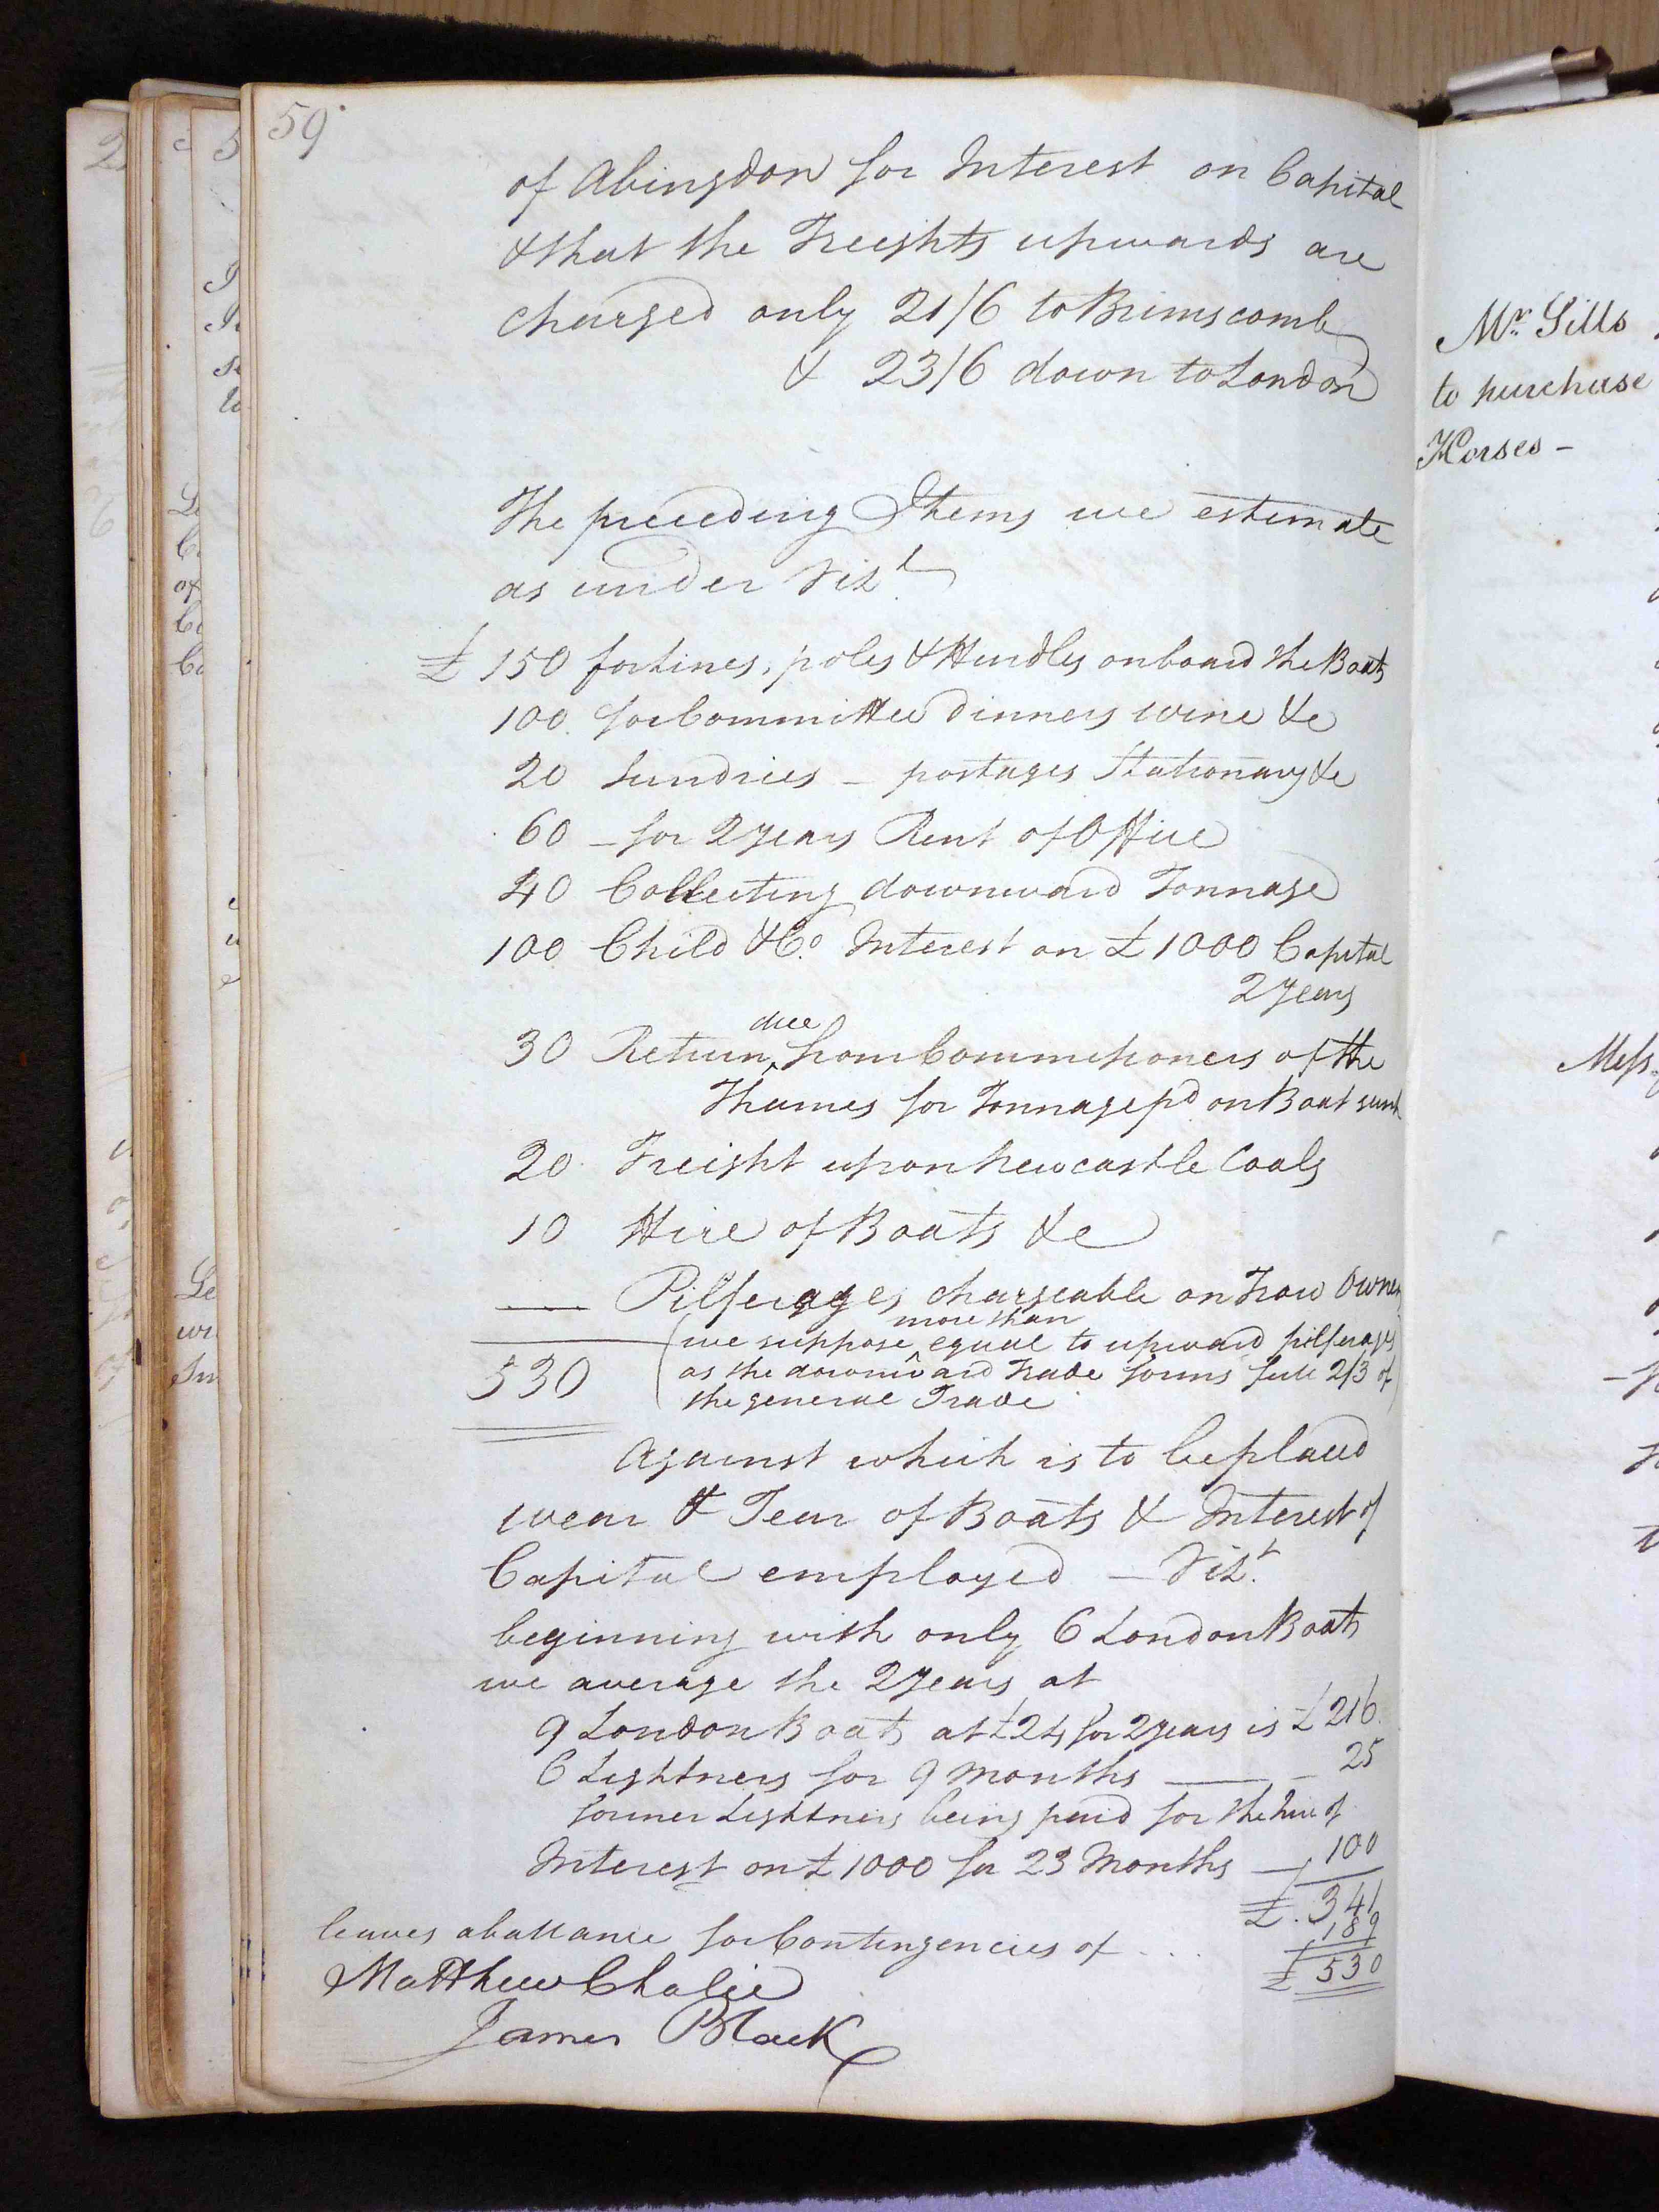 59
of Abingdon for Interest on Capital
& that the Freights upwards are
charged only 21/6 to Brimscomb
& 23/6 down to London
The preceeding Items we estimate
as under Vizt
£ 150 for lines, poles & Hurdles on board the Boats
100 for Committee dinners wine &c
20 Sundries - postages Stationary &c
60 - for 2 years Rent of Office
40 Collecting downward Tonnage
100 Child & Co. Interest on £1000 Capital
2 years
30 Return due from Commissioners of the
Thames for Tonnage pd on Boat sunk
20 Freight upon Newcastle Coals
10 Hire of Boats &c
— Pilferages chargeable on Trow Owners
(we suppose more than equal to upward pilferages
530 as the downward Trade forms full 2/3 of
the general Trade
Against which is to be placed
wear & Tear of Boats & Interest of
Capital employed - Vizt.
beginning with only 6 London Boats
we average the 2 years at
9 London Boats at £24 for 2 years is £216
6 Lightners for 9 Months — 25
former Lightners being paid for the hire of
Interest on £1000 for 23 Months — 100
£. 341
leaves a ballance for Contingencies of ... 189
£ 530
Matthew Chalie
James Black
Mr. Gills
to purchase
Horses -
Mess